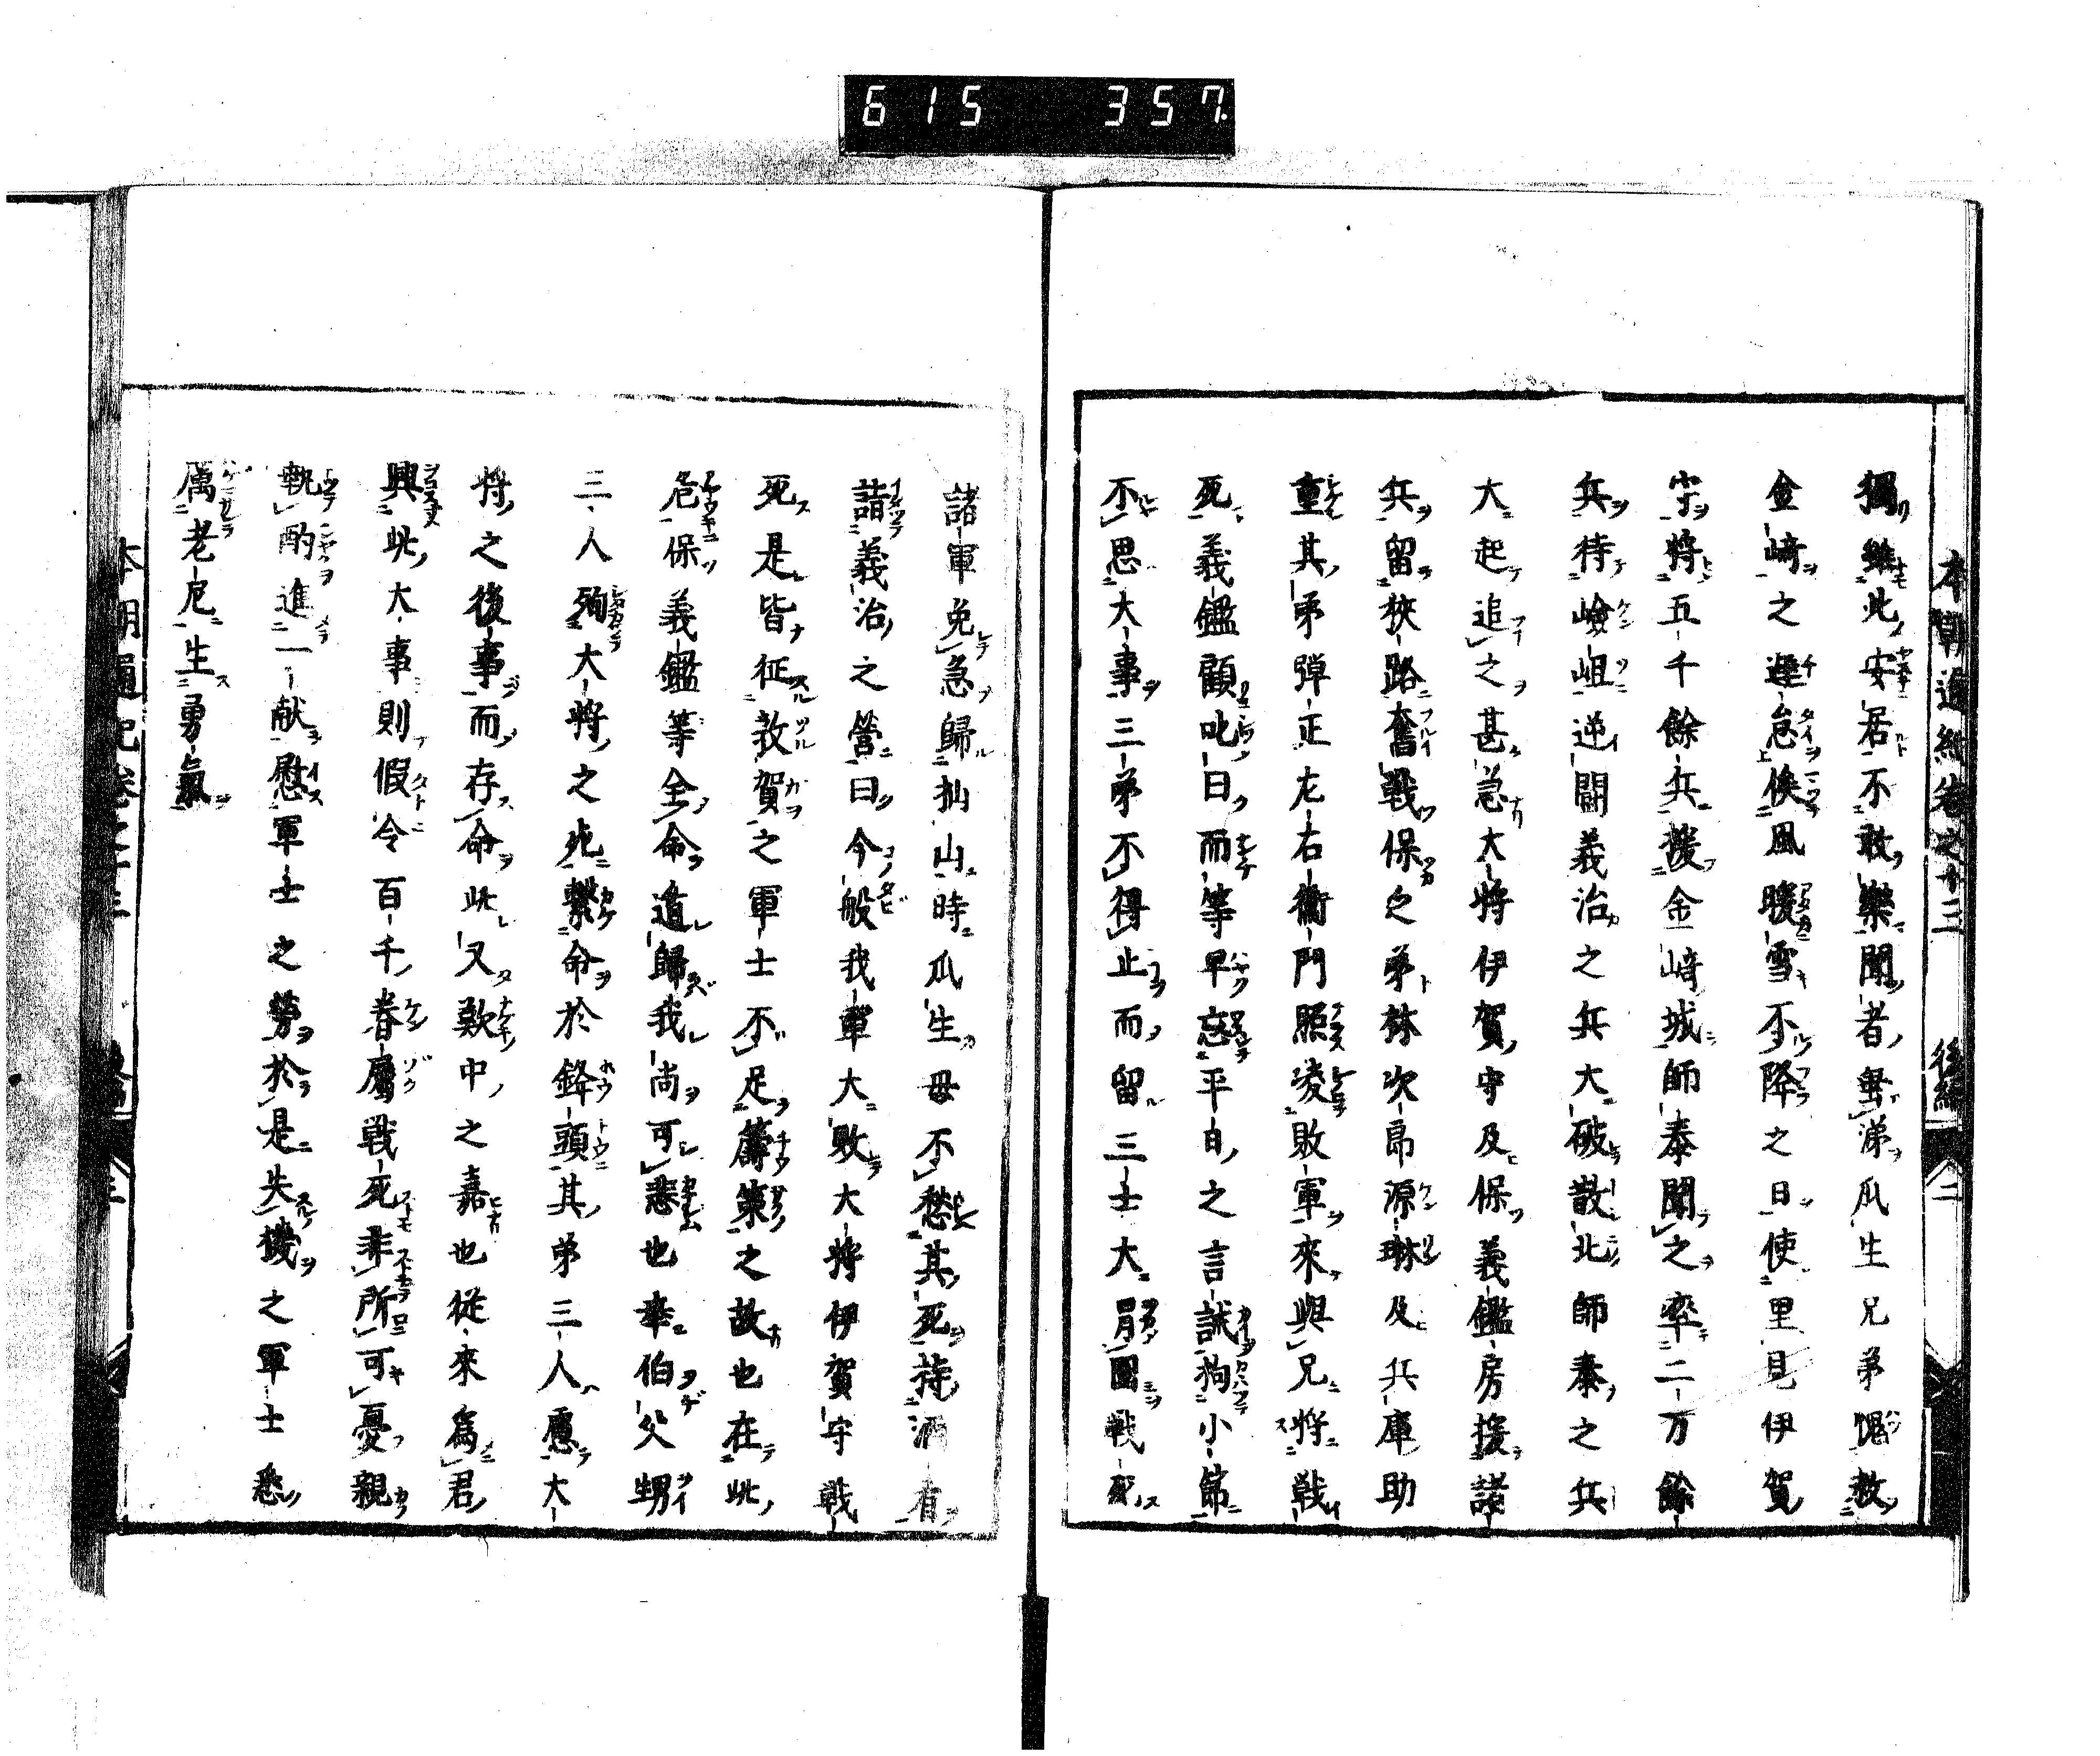 615 357
本朝通紀卷之十三 後編 二
獨雖此安居不敢樂聞者無不垂涕瓜生兄弟愧救
金﨑之遲怠俟風暖雪不降之日使里見伊賀
守將五千餘兵援金﨑城師泰聞之率二万餘
兵待嶮岨逆鬪義治之兵大破散北師泰之兵
大起追之甚急大將伊賀守及保義鑑房援諸
兵留狹路奮戰保之弟林次郎源琳及兵庫助
重其弟彈正左右衞門照凌敗軍來與兄將戰
死義鑑顧叱曰而等早忘平日之言誠狥小節
不思大事三弟不得止而留三士大歬圖戰死
諸軍免急歸杣山時瓜生母不愁其死持酒肴
詣義治之營曰今般我輩大敗大將伊賀守戰
死是皆征救賀之軍士不足籌策之故也在此
危保義鑑等全命遁歸我尚可悲也幸伯父甥
三人殉大將之死繫命於鋒頭其弟三人慮大
將之後事而存命此又歎中之嘉也從來爲君
興此大事則假令百千眷屬戰死非所可憂親
執酌進一献慰軍士之勞於是失機之軍士悉
属老尼生勇氣
本朝通紀卷之十三 後編 三